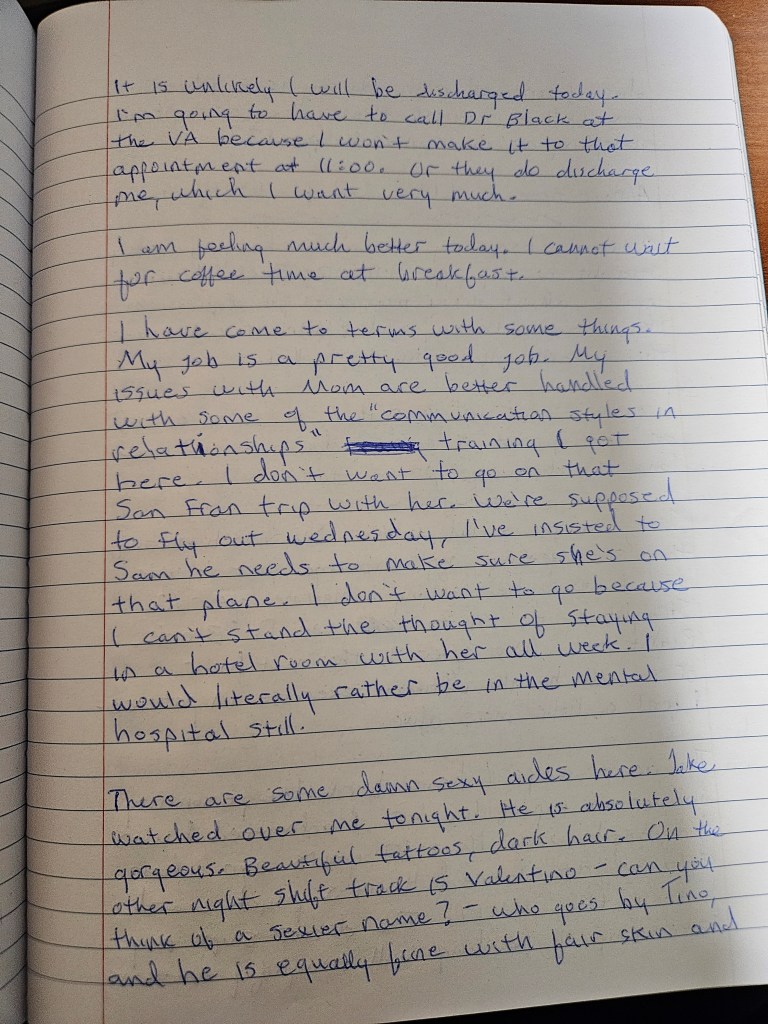 It is unlikely I will be discharged today.
I'm going to have to call Dr Black at
the VA because I won't make it to that
appointment at 11:00. Or they do discharge
me, which I want very much.
I am feeling much better today. I cannot wait
for coffee time at breakfast.
I have come to terms with some things.
My job is a pretty good job. My
issues with Mom are better handled
with some of the "communication styles in
relationships" training I got
here. I don't want to go on that
San Fran trip with her. We're supposed
to fly out wednesday, I've insisted to
Sam he needs to make sure she's on
that plane. I don't want to go because
I can't stand the thought of staying
in a hotel room with her all week. I
would literally rather be in the mental
hospital still.
There are some damn sexy aides here. Jake
watched over me tonight. He is absolutely
gorgeous. Beautiful tattoos, dark hair. On the
other night shift track is Valentino - can you
think of a sexier name? - who goes by Tino,
and he is equally fine with fair skin and